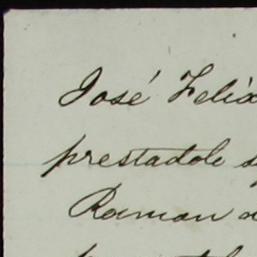 José Felix
prestadole
Raman